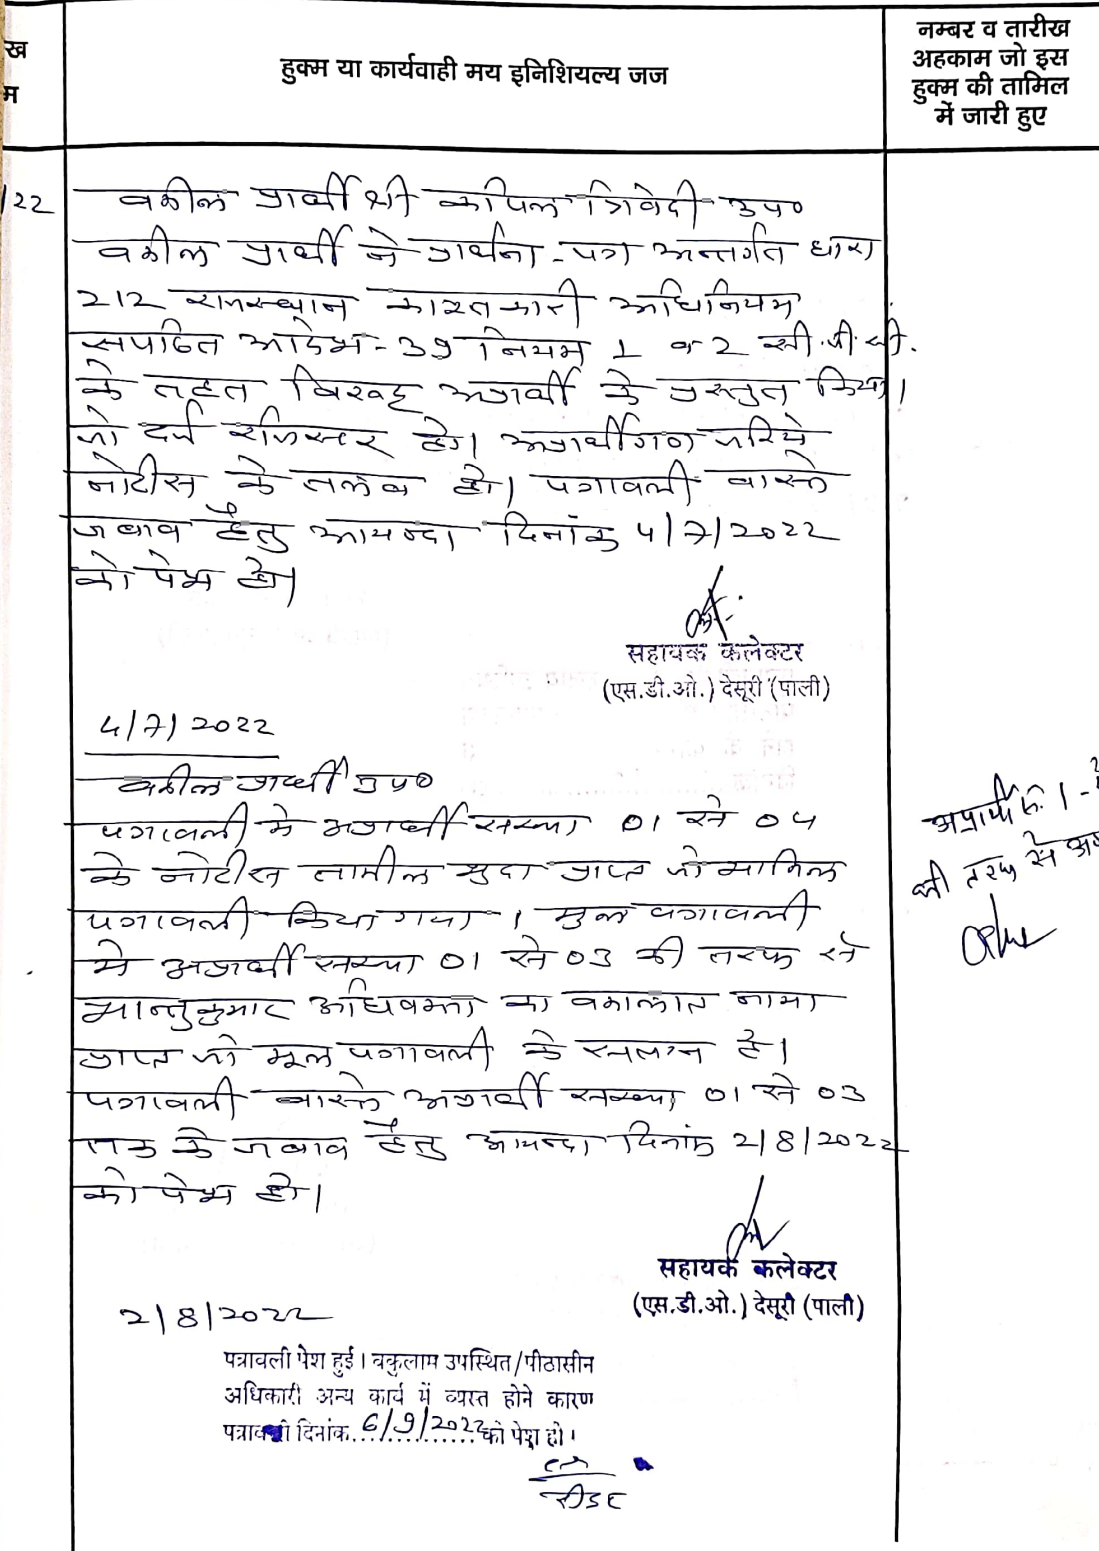 ख
म
हुक्म या कार्यवाही मय इनिशियल्य जज
नम्बर व तारीख
अहकाम जो इस
हुक्म की तामिल
में जारी हुए
/22
वकील प्रार्थी श्री कपिल त्रिवेदी उप०
वकील प्रार्थी ने प्रार्थना-पत्र अन्तर्गत धारा
212 राजस्थान काश्तकारी अधिनियम
सपठित आदेश-39 नियम 1 व 2 सी.पी.सी.
के तहत विरुद्ध अप्रार्थी के प्रस्तुत किया।
जो दर्ज रजिस्टर हो। अप्रार्थीगण जरिये
नोटीस के तलब हो। पत्रावली वास्ते
जबाव हेतु आयन्दा दिनांक 4/7/2022
को पेश हो।
सहायक कलेक्टर
(एस.डी.ओ.) देसूरी (पाली)
4/7/2022
वकील प्रार्थी उप०
पत्रावली मे अप्रार्थी संख्या 01 से 04
के नोटीस तामील सुदा प्राप्त जो सामिल
पत्रावली किया गया। मुल पत्रावली
मे अप्रार्थी संख्या 01 से 03 की तरफ से
अधिवक्ता का वकालात नामा
प्राप्त जो मूल पत्रावली के सलग्न है।
पत्रावली वास्ते अप्रार्थी संख्या 01 से 03
तक के जबाव हेतु आयन्दा दिनांक 2/8/2022
को पेश हो।
अप्रार्थी क्र. 1-
की तरफ से
सहायक कलेक्टर
(एस.डी.ओ.) देसूरी (पाली)
2/8/2022
पत्रावली पेश हुई। वकुलाम उपस्थित/पीठासीन
अधिकारी अन्य कार्य में व्यस्त होने कारण
पत्रावली दिनांक 6/9/2022 को पेश हो।
रीडर